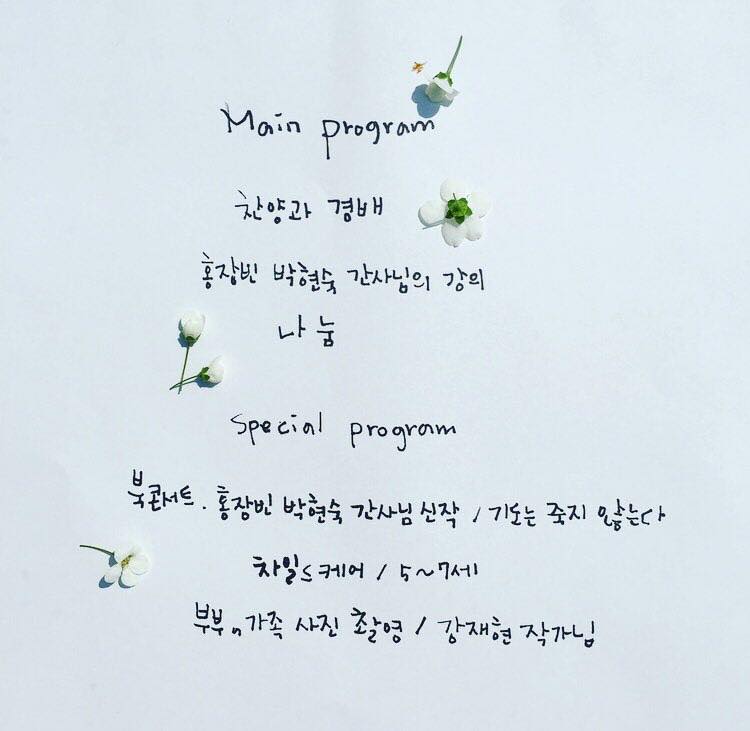 Main program
찬양과 경배
홍장빈 박현숙 간사님의 강의
나눔
Special program
북콘서트. 홍장빈 박현숙 간사님 신작 / 기도는 죽지 않는다
차일드케어 / 5~7세
부부, 가족 사진 촬영 / 강재현 작가님